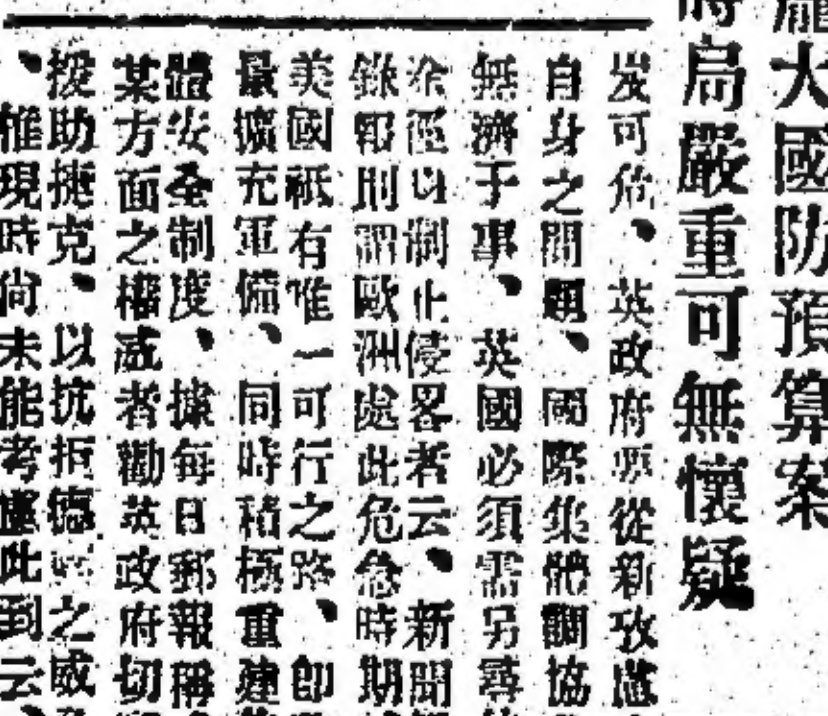 龐大國防預算案
時局嚴重可無懷疑
岌可危、英政府須從新攷慮
自身之問題、國際集體調協
無濟于事、英國必須需另尋
途徑以制止侵畧者云、新聞
錄報則謂歐洲處此危急時期
美國祇有唯一可行之路、即
最擴充軍備、同時積極重建
體安全制度、據每日郵報稱
某方面之權威者勸英政府切
援助捷克、以抗拒德國之威
、惟現時尚未能考慮此到云